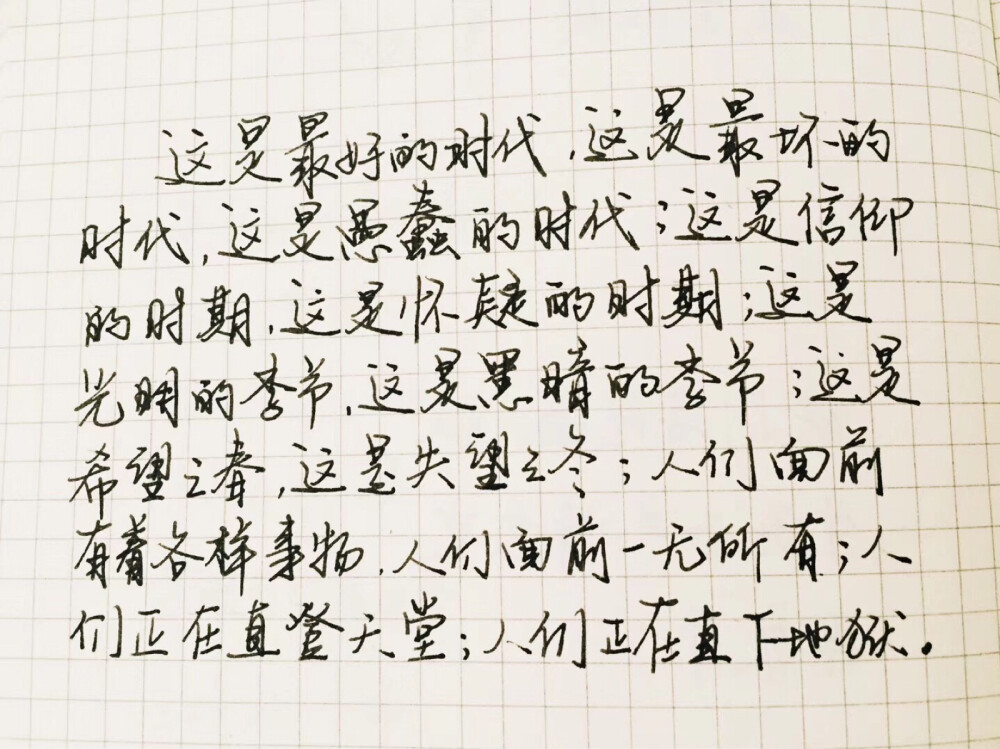 这是最好的时代，这是最坏的
时代，这是愚蠢的时代；这是信仰
的时期，这是怀疑的时期；这是
光明的季节，这是黑暗的季节；这是
希望之春，这是失望之冬；人们面前
有着各样事物，人们面前一无所有；人
们正在直登天堂；人们正在直下地狱。